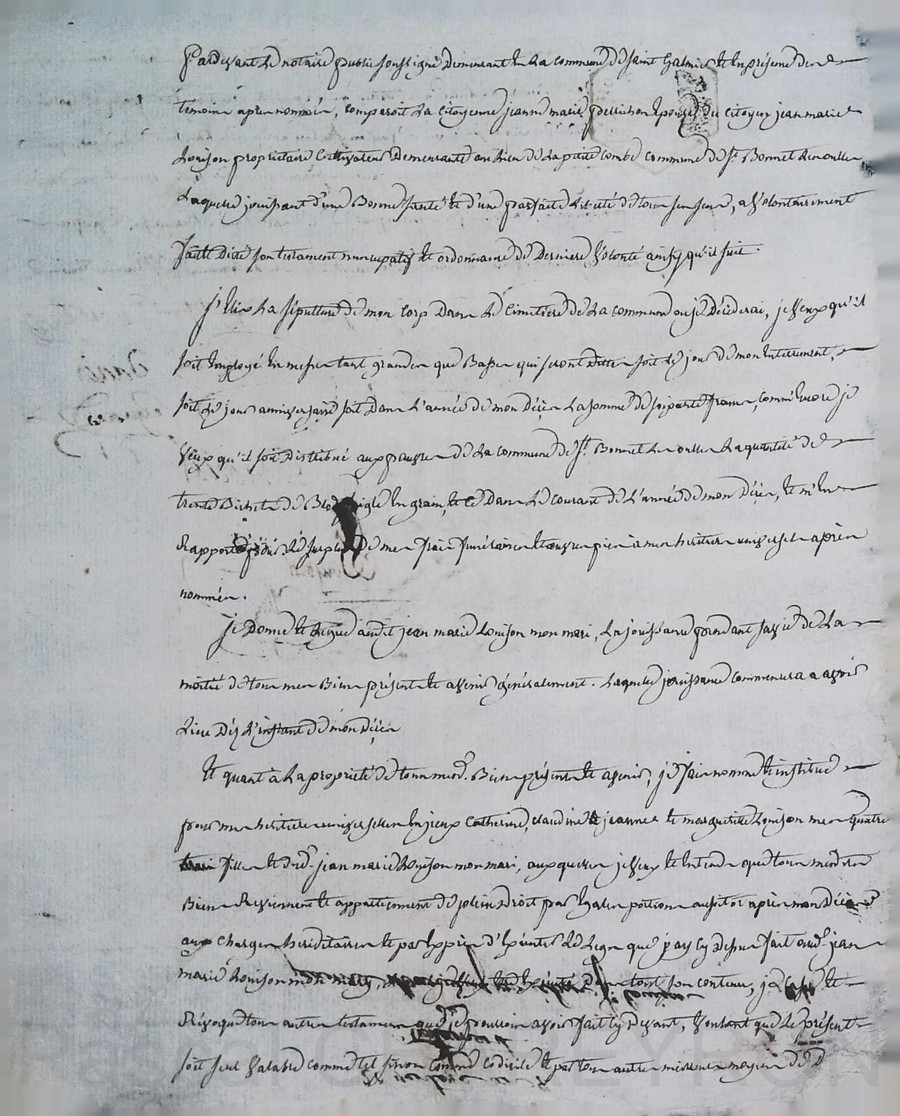 Pardevant le notaire public soussigné demeurant en la commune de Saint Galmier et en présence des
temoins apres nommés, comparoit la citoyenne jeanne marie épouse du citoyen jean marie
Louison propriétaire Cultivateur demeurante au lieu de la petite Combe commune de St Bonnet les oulles
Laquelle jouissant d'une Bonne santé et d'une parfaite liberté de tous ses sens, a volontairement
fait et dicté son testament nuncupatif et ordonnance de derniere volonté ainsy qu'il suit.
j'Elis la sépulture de mon corp dans le Cimetière de la commune ou je décéderai, je veux qu'il
soit employé en messes tant grandes que Basses qui seront dittes soit le jour de mon enterrement,
soit le jour anniversaire soit dans l'année de mon décès la somme de soixante francs, comme encore je
veux qu'il soit distribué aux pauvres de la commune de St Bonnet les oulles la quantité de
trente Bichets de Bled seigle en grain, et ce dans le courant de l'année de mon décès, et m'en
Rapporte pour le surplus de mes frais funéraires et œuvres pies à mes heritieres universelles après
nommées.
je donne et legue audit jean marie Louison mon mari, la jouissance pendant sa vie de la
moitié de tous mes Biens présents et avenir généralement. Laquelle jouissance commencera a avoir
lieu dès l'instant de mon décès
Et quant à la propriété de tous mesd. Biens présents et avenir, je fais nomme et institue
pour mes heritieres universelles en jeux Catherine, claudine jeanne et marguerite Louison mes quatre
filles et dud. jean marie Louison mon mari, auxquelles je veux et entends que tous mesdits
Biens Reviennent et appartiennent de plein droit par egales portions aussitot après mon décès
aux charges héréditaires et par exprès d'exécuter le legs que j'ay cy dessus fait aud. jean
marie Louison mon mary tout son contenu, je casse et
Révoque tous autres testaments que je pourrois avoir fait cy devant, voulant que le présent
soit seul valable comme tel sinon comme codicile et par tous autres meilleurs moyens de d